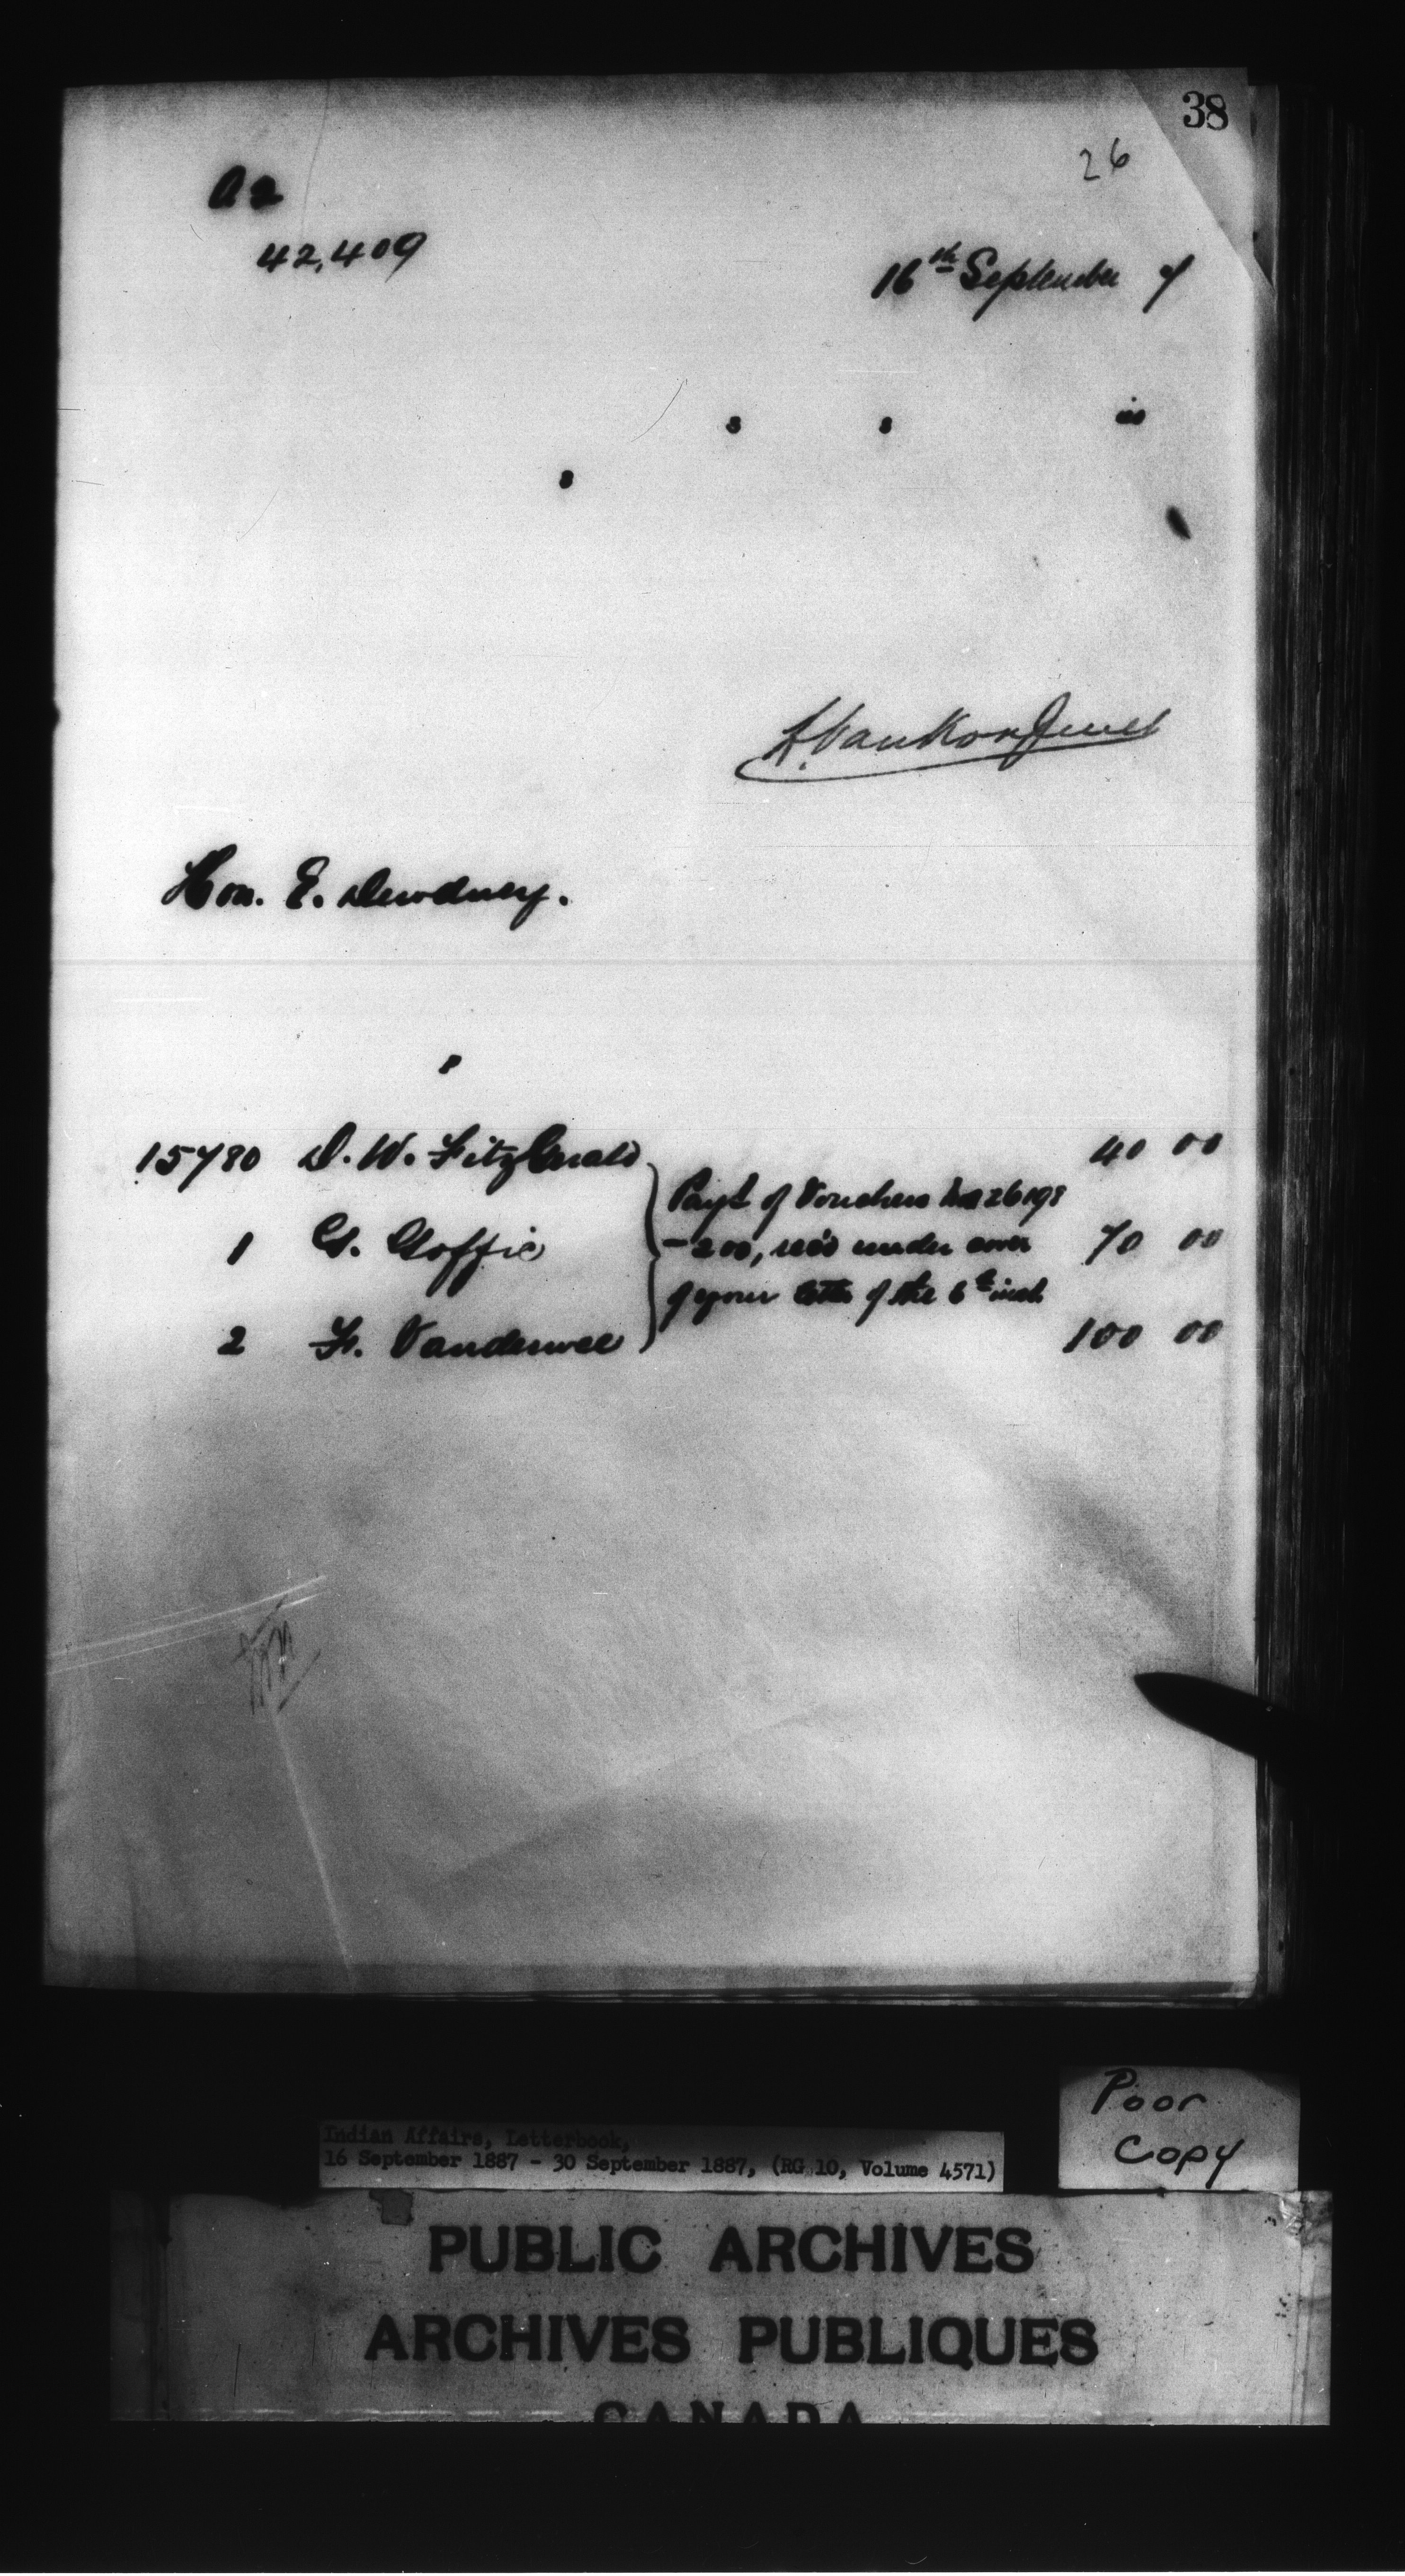 38
26
A 2
42,409
16th September 7
s s in
s
L. VanKoughnet
Hon. E. Dewdney.
15780 D. W. FitzGerald 40 00
Payt of Vouchers Nos 26198
1 G. Goffic 70 00
- 200, rec'd under cover
of your letter of the 6th inst.
2 F. Vanderwee 100 00
Poor
Copy
Indian Affairs, Letterbook,
16 September 1887 - 30 September 1887, (RG 10, Volume 4571)
PUBLIC ARCHIVES
ARCHIVES PUBLIQUES
CANADA